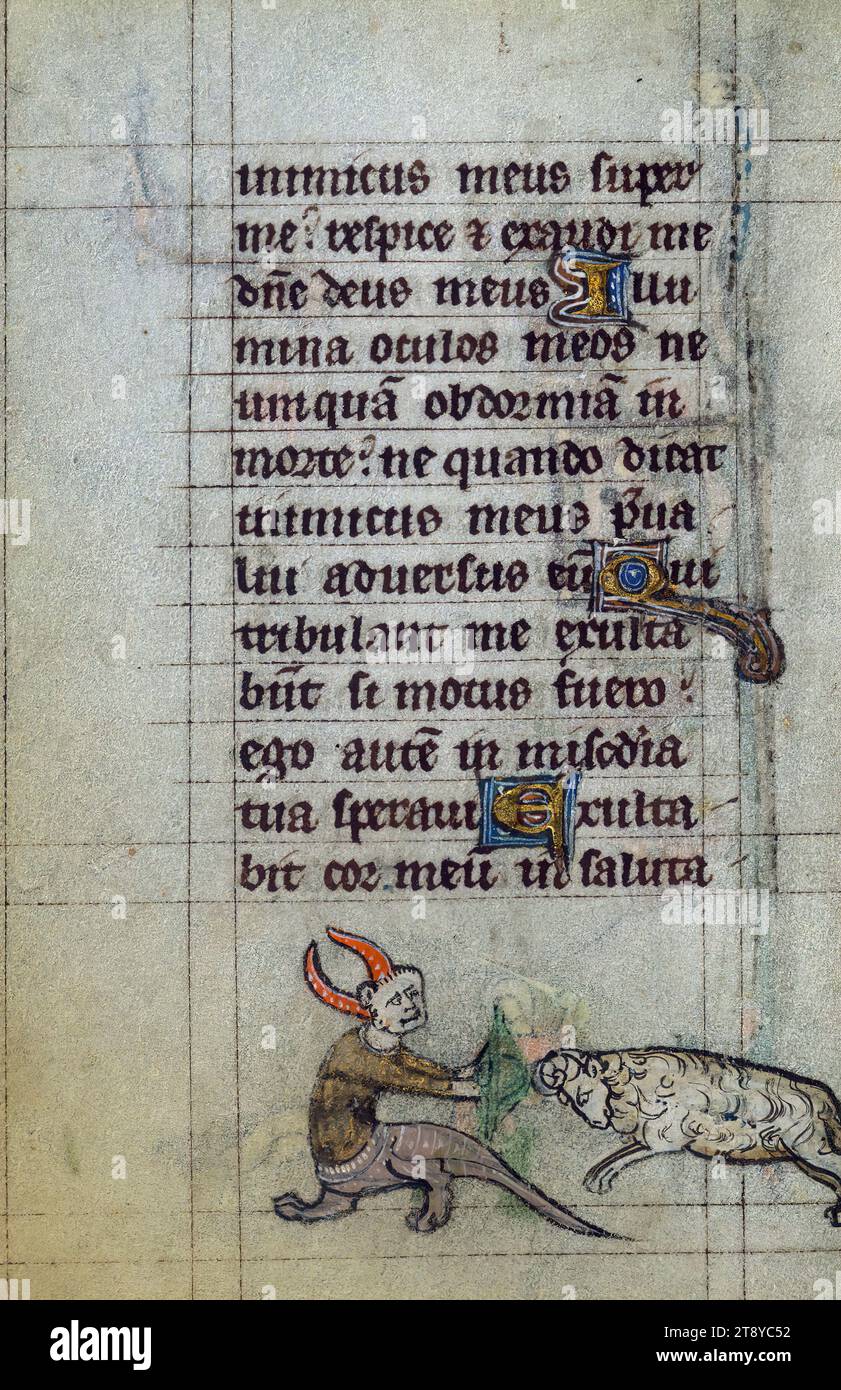 inimicus meus super
me? respice & exaudi me
dñe deus meus Illu
mina oculos meos ne
umquā obdormiā in
morte? ne quando dicat
inimicus meus p̄ua
lui aduersus eū Qui
tribulant me exulta
būt si motus fuero?
ego autē in misc̄dia
tua speraui Exulta
bit cor meū in saluta
alamy
Image ID: 2T8YC52
www.alamy.com